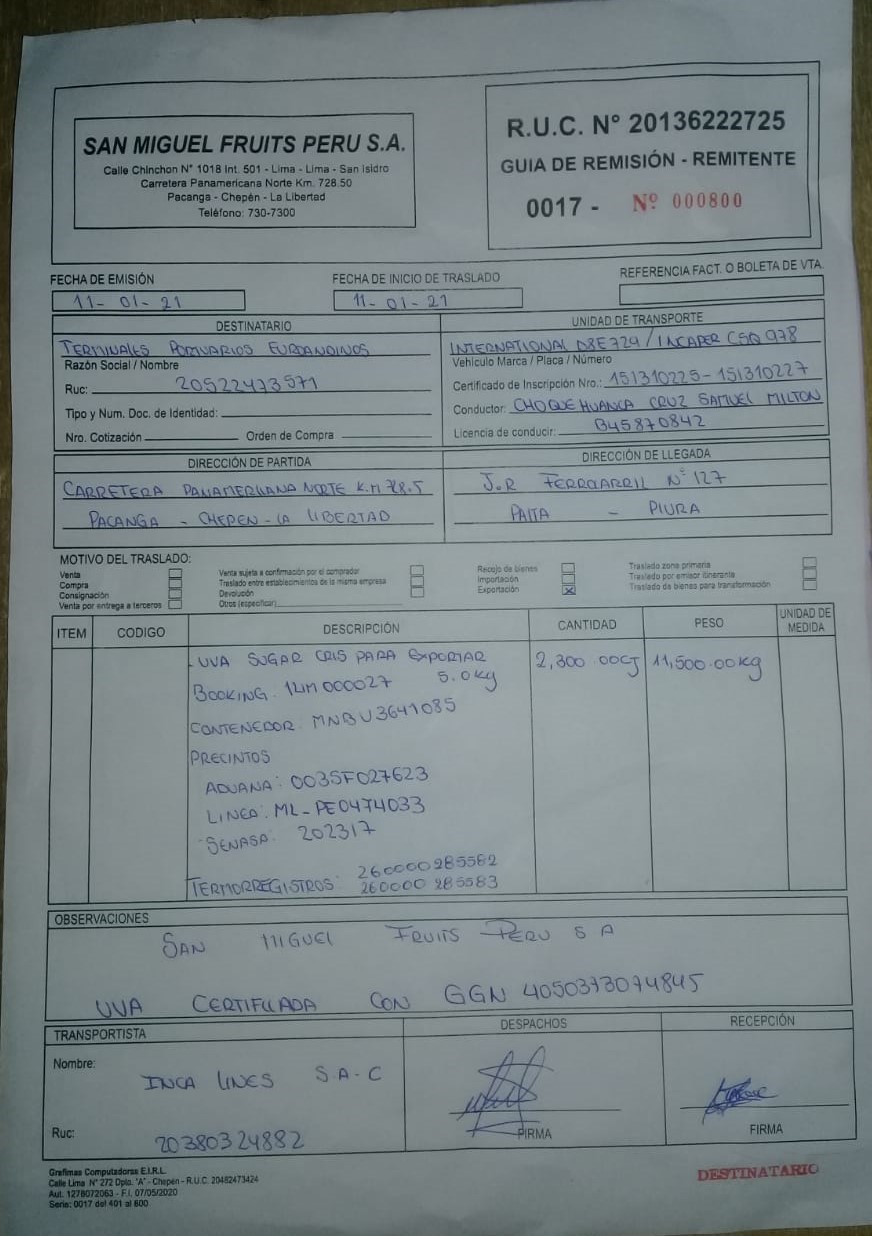 SAN MIGUEL FRUITS PERU S.A.
Calle Chinchon N° 1018 Int. 501 - Lima - Lima - San Isidro
Carretera Panamericana Norte Km. 728.50
Pacanga - Chepén - La Libertad
Teléfono: 730-7300
R.U.C. N° 20136222725
GUIA DE REMISIÓN - REMITENTE
0017 - Nº 000800
FECHA DE EMISIÓN
11-01-21
FECHA DE INICIO DE TRASLADO
11-01-21
REFERENCIA FACT. O BOLETA DE VTA.
DESTINATARIO
TERMINALES PORTUARIOS EUROANDINOS
Razón Social / Nombre
Ruc: 20522473571
Tipo y Num. Doc. de Identidad:
Nro. Cotización Orden de Compra
UNIDAD DE TRANSPORTE
INTERNATIONAL D8E724 / INCAPER CSQ 978
Vehículo Marca / Placa / Número
Certificado de Inscripción Nro.: 151310225-151310227
Conductor: CHOQUEHUANCA CRUZ SAMUEL MILTON
Licencia de conducir: B45870842
DIRECCIÓN DE PARTIDA
CARRETERA PANAMERICANA NORTE K.M 728.5
PACANGA - CHEPEN - LA LIBERTAD
DIRECCIÓN DE LLEGADA
J.R FERROARRIL Nº 127
PAITA - PIURA
MOTIVO DEL TRASLADO:
Venta
Compra
Consignación
Venta por entrega a terceros
Venta sujeta a confirmación por el comprador
Traslado entre establecimientos de la misma empresa
Devolución
Otros (especificar)
Recojo de bienes
Importación
Exportación X
Traslado zona primaria
Traslado por emisor itinerante
Traslado de bienes para transformación
ITEM CODIGO DESCRIPCIÓN CANTIDAD PESO UNIDAD DE MEDIDA
UVA SUGAR CRIS PARA EXPORTAR 2,300.00CJ 11,500.00kg
5.0kg
BOOKING. 1LIM000027
CONTENEDOR: MNBU3641085
PRECINTOS
ADUANA: 0035F027623
LINEA: ML-PE0474033
SENASA: 202317
TERMORREGISTROS: 260000285582
260000285583
OBSERVACIONES
SAN MIGUEL FRUITS PERU S A
UVA CERTIFICADA CON GGN 4050373074845
TRANSPORTISTA
Nombre:
INCA LINES S.A.C
Ruc: 20380324882
DESPACHOS
FIRMA
RECEPCIÓN
FIRMA
Grafimas Computadoras E.I.R.L.
Calle Lima N° 272 Dpto. "A" - Chepén - R.U.C. 20482473424
Aut. 1278072063 - F.I. 07/05/2020
Serie: 0017 del 401 al 800
DESTINATARIO